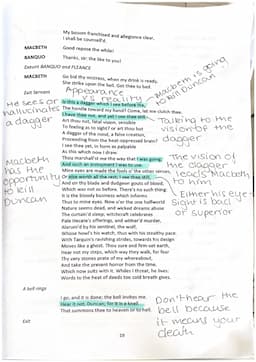 My bosom franchised and allegiance clear,
I shall be counsell'd.
MACBETH Good repose the while!
BANQUO Thanks, sir: the like to you!
Exeunt BANQUO and FLEANCE
MACBETH Go bid thy mistress, when my drink is ready,
She strike upon the bell. Get thee to bed.
Exit Servant
Appearance
vs reality
Macbeth is going
to kill Duncan
He sees or
hallucinates
a dagger
Is this a dagger which I see before me,
The handle toward my hand? Come, let me clutch thee.
I have thee not, and yet I see thee still.
Art thou not, fatal vision, sensible
To feeling as to sight? or art thou but
A dagger of the mind, a false creation,
Proceeding from the heat-oppressed brain?
I see thee yet, in form as palpable
As this which now I draw.
Talking to the
vision of the
dagger
Macbeth
has the
opportunity
to kill
Duncan
Thou marshall'st me the way that I was going;
And such an instrument I was to use.
Mine eyes are made the fools o' the other senses,
Or else worth all the rest; I see thee still,
And on thy blade and dudgeon gouts of blood,
Which was not so before. There's no such thing:
It is the bloody business which informs
Thus to mine eyes. Now o'er the one halfworld
Nature seems dead, and wicked dreams abuse
The curtain'd sleep; witchcraft celebrates
Pale Hecate's offerings, and wither'd murder,
Alarum'd by his sentinel, the wolf,
Whose howl's his watch, thus with his stealthy pace.
With Tarquin's ravishing strides, towards his design
Moves like a ghost. Thou sure and firm-set earth,
Hear not my steps, which way they walk, for fear
Thy very stones prate of my whereabout,
And take the present horror from the time,
Which now suits with it. Whiles I threat, he lives:
Words to the heat of deeds too cold breath gives.
The vision of
the dagger
leads Macbeth
to him
Either his eye-
sight is bad
or superior
A bell rings
I go, and it is done; the bell invites me.
Hear it not, Duncan; for it is a knell
That summons thee to heaven or to hell.
Exit
Don't hear the
bell because
it means your
death
19